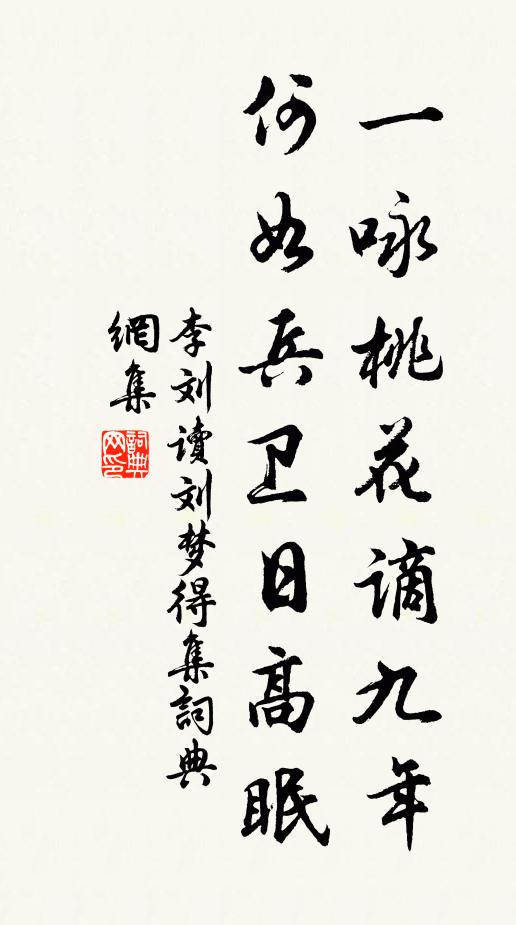 一咏桃花谪九年
何如兵卫日高眠
李刘读刘梦得集詞典
網集
詞典
网印